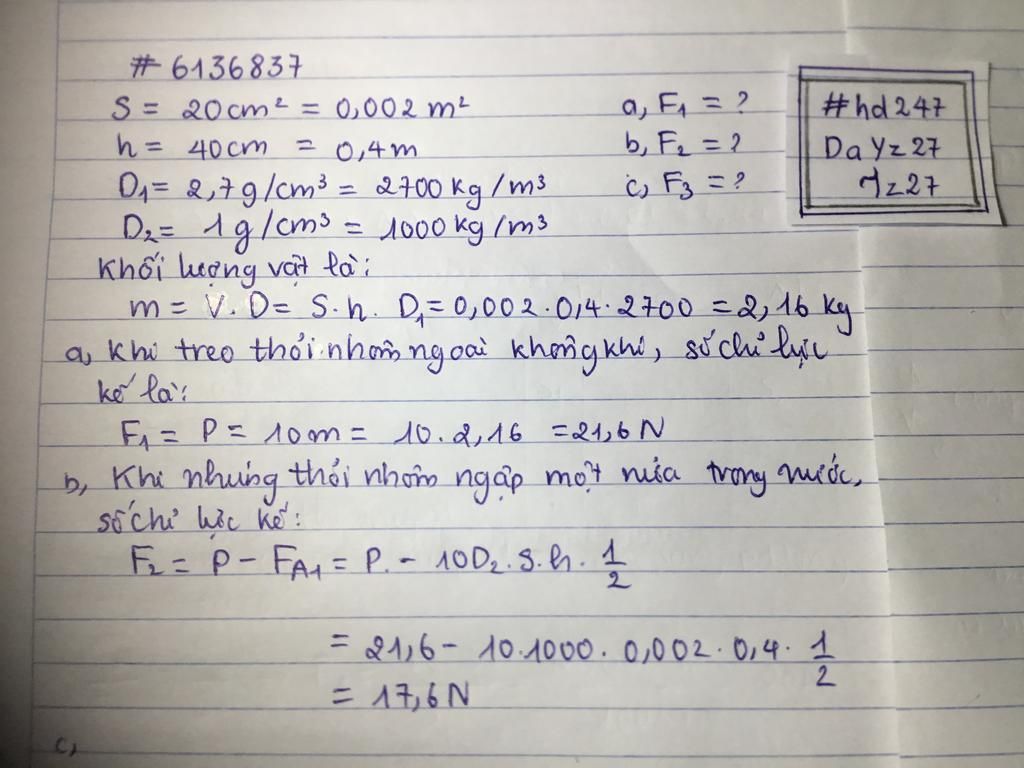 # 6136837
S = 20cm² = 0,002 m²
h = 40cm = 0,4m
D₁ = 2,7g/cm³ = 2700 kg/m³
D₂ = 1g/cm³ = 1000 kg/m³
a, F₁ = ?
b, F₂ = ?
c, F₃ = ?
#hd247
DaYz27
Yz27
Khối lượng vật là:
m = V.D = S.h.D₁ = 0,002.0,4.2700 = 2,16 kg
a, Khi treo thỏi nhôm ngoài không khí, số chỉ lực
kế là:
F₁ = P = 10m = 10.2,16 = 21,6 N
b, Khi nhúng thỏi nhôm ngập một nửa trong nước,
số chỉ lực kế:
F₂ = P - F_A₁ = P - 10D₂.S.h. 1/2
= 21,6 - 10.1000.0,002.0,4. 1/2
= 17,6 N
c,